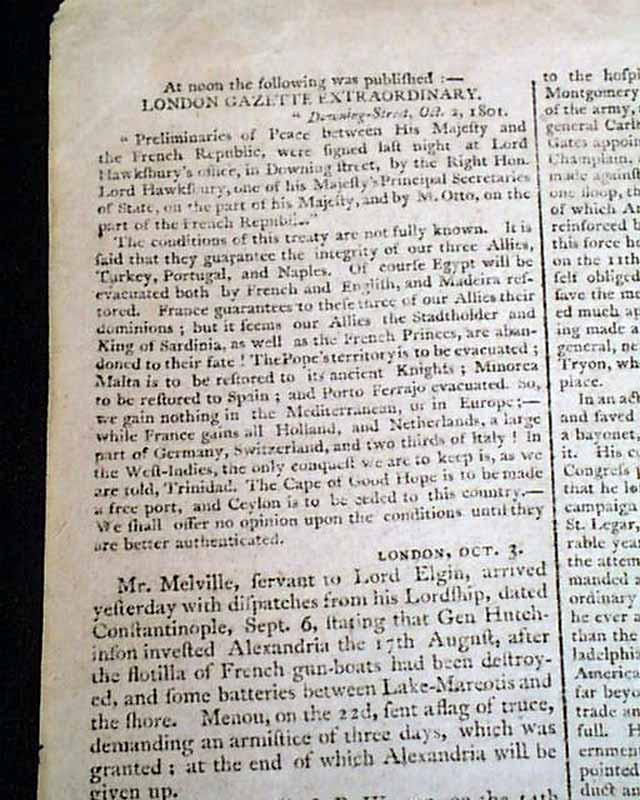 At noon the following was publiſhed :—
LONDON GAZETTE EXTRAORDINARY.
" Downing-Street, Oct. 2, 1801.
" Preliminaries of Peace between His Majeſty and
the French Republic, were ſigned laſt night at Lord
Hawkſbury's office, in Downing ſtreet, by the Right Hon.
Lord Hawkſbury, one of his Majeſty's Principal Secretaries
of State, on the part of his Majeſty, and by M. Otto, on the
part of the French Republic."
The conditions of this treaty are not fully known. It is
ſaid that they guarantee the integrity of our three Allies,
Turkey, Portugal, and Naples. Of courſe Egypt will be
evacuated both by French and Engliſh, and Madeira reſ-
tored. France guarantees to theſe three of our Allies their
dominions ; but it ſeems our Allies the Stadtholder and
King of Sardinia, as well as the French Princes, are aban-
doned to their fate ! The Pope's territory is to be evacuated ;
Malta is to be reſtored to its ancient Knights ; Minorca
to be reſtored to Spain ; and Porto Ferrajo evacuated. So,
we gain nothing in the Mediterranean, or in Europe ;—
while France gains all Holland, and Netherlands, a large
part of Germany, Switzerland, and two thirds of Italy ! In
the Weſt-Indies, the only conqueſt we are to keep is, as we
are told, Trinidad. The Cape of Good Hope is to be made
a free port, and Ceylon is to be ceded to this country.—
We ſhall offer no opinion upon the conditions until they
are better authenticated.
LONDON, OCT. 3.
Mr. Melville, ſervant to Lord Elgin, arrived
yeſterday with diſpatches from his Lordſhip, dated
Conſtantinople, Sept. 6, ſtating that Gen Hutch-
inſon inveſted Alexandria the 17th Auguſt, after
the flotilla of French gun-boats had been deſtroy-
ed, and ſome batteries between Lake-Mareotis and
the ſhore. Menou, on the 22d, ſent a flag of truce,
demanding an armiſtice of three days, which was
granted ; at the end of which Alexandria will be
given up.
to the hoſpi
Montgomery
of the army,
general Carl
Gates appoin
Champlain.
made againſt
one ſloop, th
of which Ar
reinforced b
this force he
on the 11th
felt obliged
ſave the m
ed much ap
ing made a
general, ne
Tryon, wh
place.
In an act
and ſaved
a bayonet
it. His c
Congreſs
that he lo
campaign
St. Legar,
rable year
the attem
manded
ordinary
he ever a
than the
ladelphia
America
far beyo
trade an
full. H
ernment
pointed
duct an